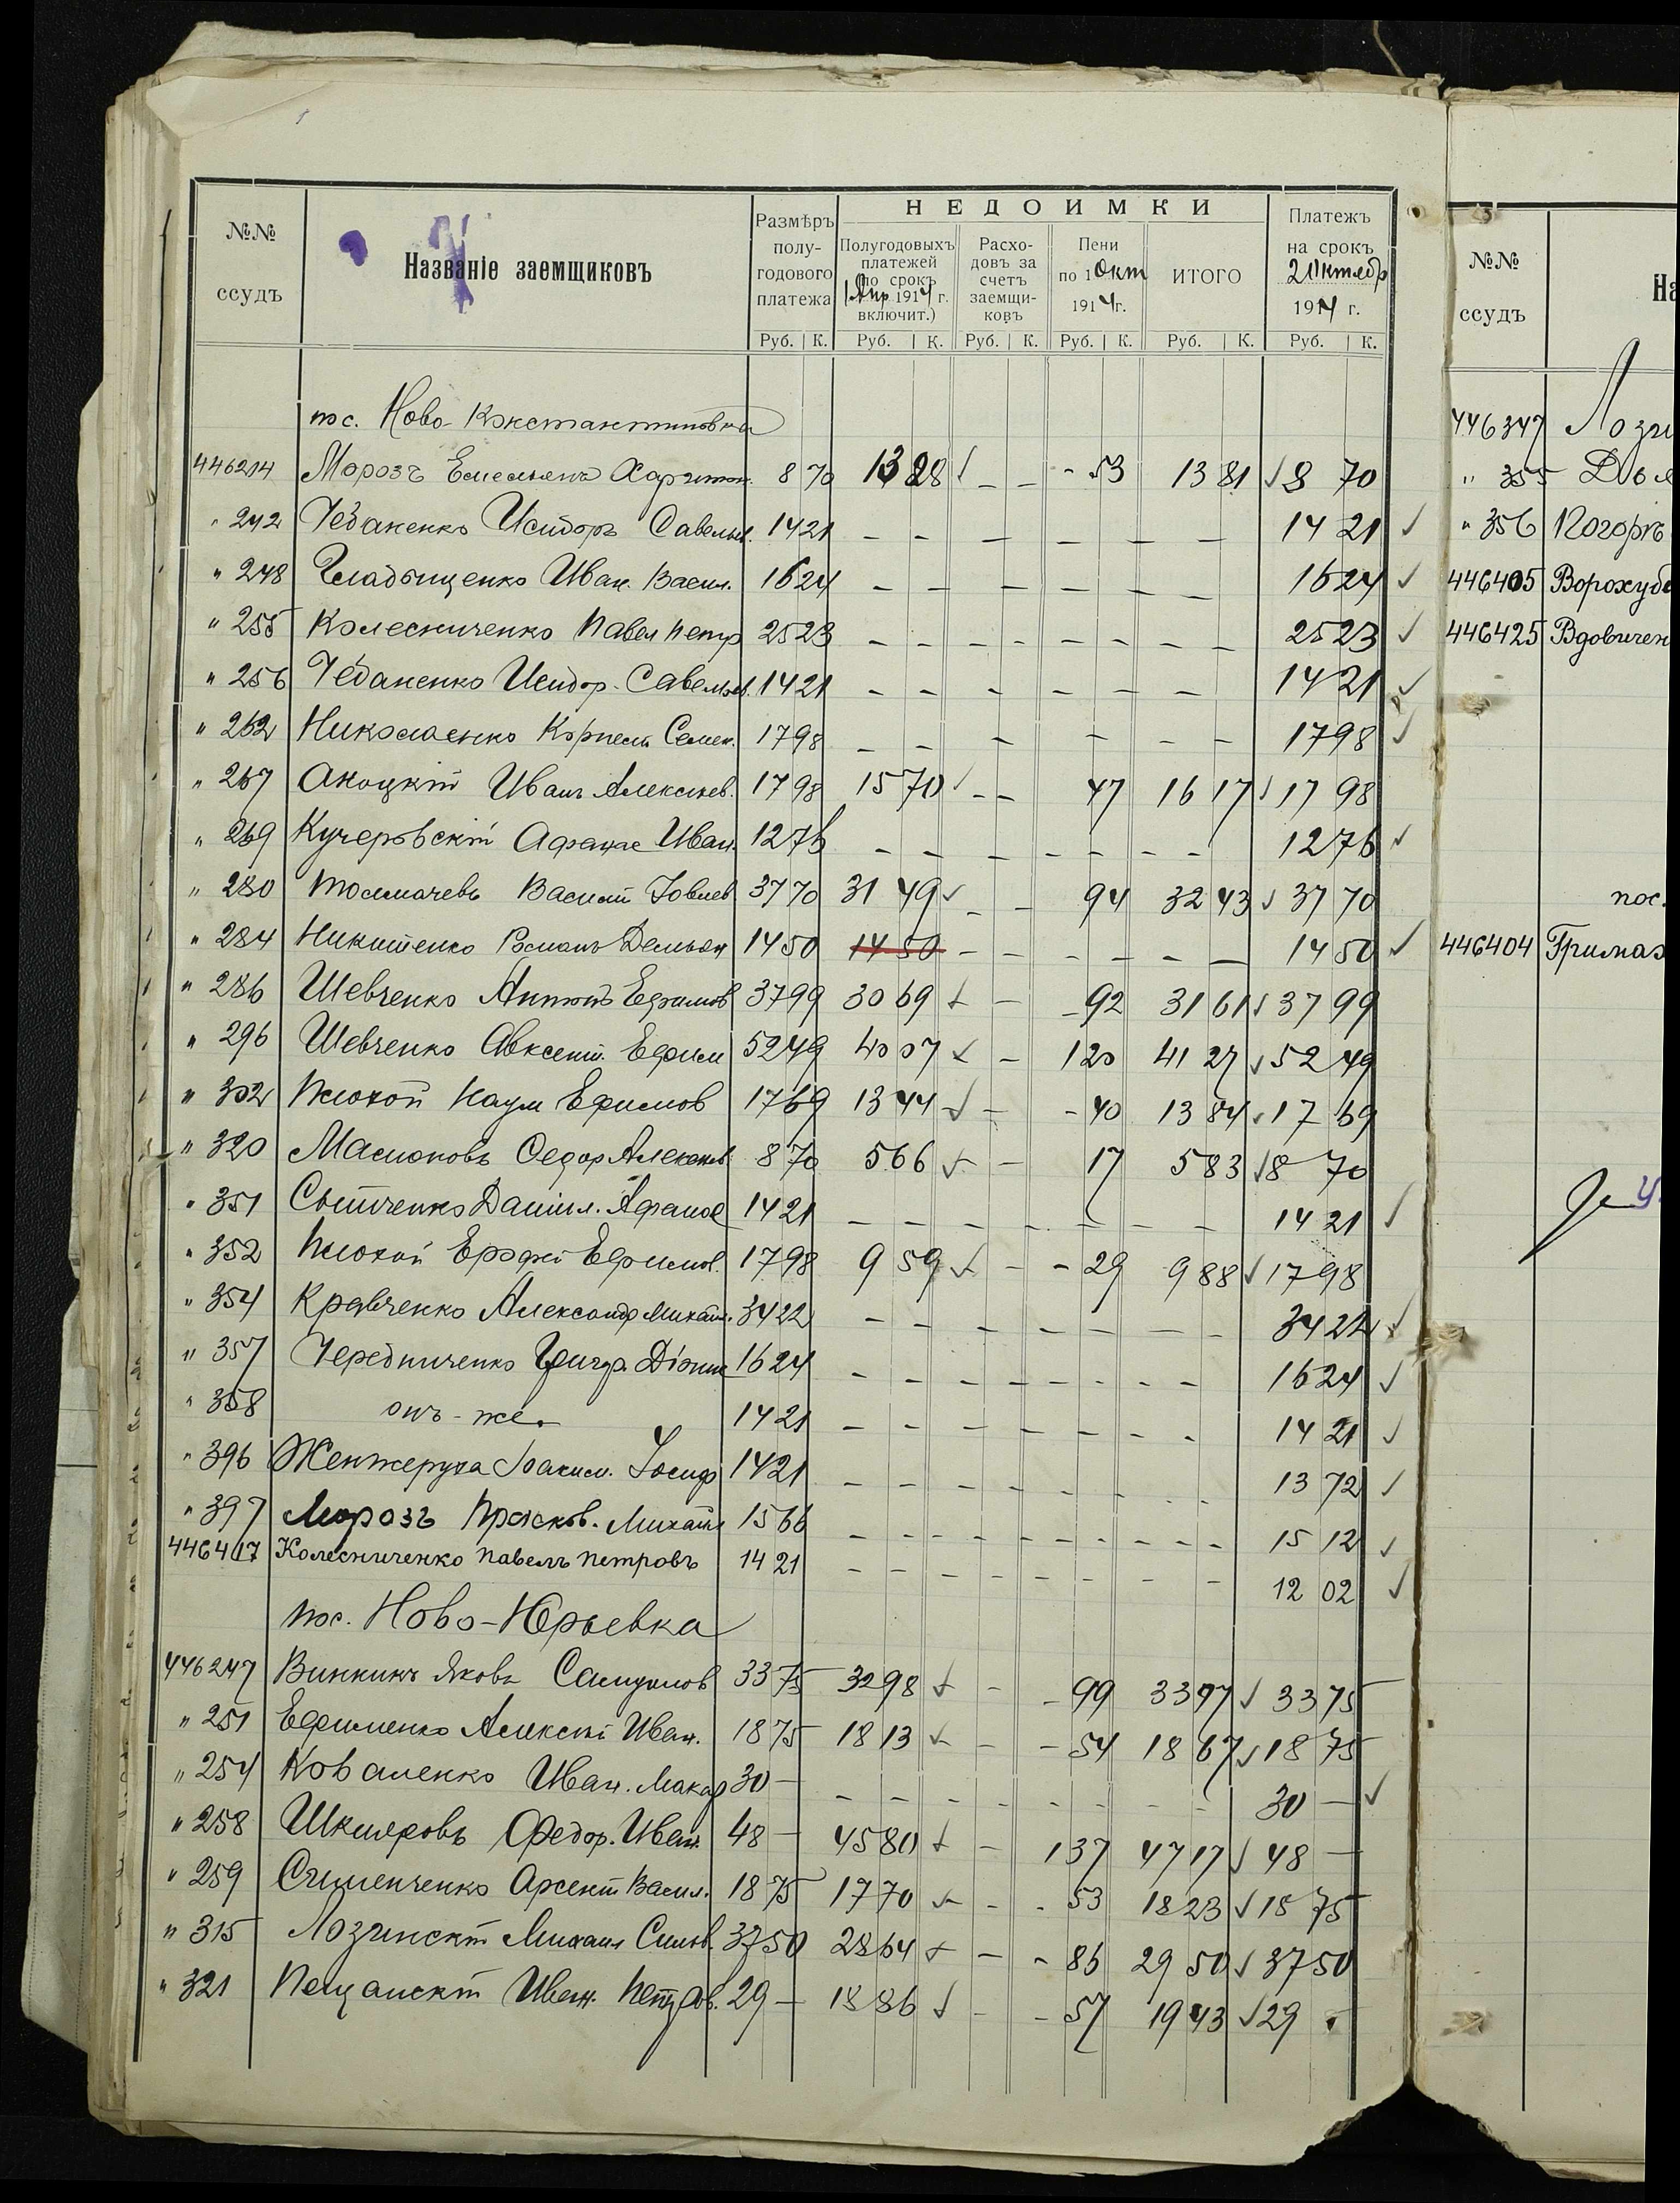 №№ ссудъ
Названіе заемщиковъ
Размѣръ полугодового платежа
НЕДОИМКИ
Полугодовыхъ платежей (по срокъ 1 Апр 1914 г. включит.)
Расходовъ за счетъ заемщиковъ
Пени по 1 Окт 1914 г.
ИТОГО
Платежъ на срокъ 2 Октябр 1914 г.
Руб. К. Руб. К. Руб. К. Руб. К. Руб. К. Руб. К.
пос. Ново-Константиновка
446214 Морозъ Емельянъ Харитон. 8 70 13 28 – – - 53 13 81 8 70
" 242 Исидоръ Савельев. 14 21 – – – – – – 14 21
" 248 Гладыщенко Иван. Васил. 16 24 – – – – – – 16 24
" 255 Колесниченко Павел Петр 25 23 – – – – – – – – 25 23
" 256 Исидор. Савельев. 14 21 – – – – – – 14 21
" 262 Николаенко Корнелъ Семен. 17 98 – – – – – – 17 98
" 267 Иванъ Алексѣев. 17 98 15 70 – – 47 16 17 17 98
" 269 Кучеровскій Афанас Иван. 12 76 – – – – – – – 12 76
" 280 Толмачевъ Василій Іовлев 37 70 31 49 – – 94 32 43 37 70
" 284 Никитенко Романъ Демьян 14 50 14 50 – – – – – – 14 50
" 286 Шевченко Антонъ Ефимов 37 99 30 69 – 92 31 61 37 99
" 296 Шевченко Авксент. Ефим 52 49 40 07 – 1 20 41 27 52 49
" 302 Плохой Наум Ефимов 17 69 13 44 – - 40 13 84 17 69
" 320 Федор Алексѣев 8 70 5 66 – 17 5 83 8 70
" 351 Даніил. Афанас 14 21 – – – – – – – – 14 21
" 352 Плохой Ерофей Ефимов. 17 98 9 59 – - 29 9 88 17 98
" 354 Кравченко Александр Михайл. 34 22 – – – – – – – – 34 22
" 357 Чередниченко Григор. Діонис 16 24 – – – – – – – – 16 24
" 358 онъ-же. 14 21 – – – – – – – – 14 21
" 396 Женжеруха Іоаким. Іосиф 14 21 – – – – – – – – 13 72
" 397 Морозъ Прасков. Михайл 15 66 – – – – – – – – 15 12
446417 Колесниченко Павелъ Петровъ 14 21 – – – – – – – – 12 02
пос. Ново-Юрьевка
446247 Винникъ Яковъ Самуилов 33 75 32 98 – - 99 33 97 33 75
" 251 Ефименко Алексѣй Иван. 18 75 18 13 – - 54 18 67 18 75
" 254 Коваленко Иван. Макар 30 – – – – – – – – – 30 –
" 258 Шкляровъ Федор. Иван. 48 – 45 80 – 1 37 47 17 48 –
" 259 Арсент Васил. 18 75 17 70 – - 53 18 23 18 75
" 315 Лозинскій Михаил Силов. 37 50 28 64 – - 86 29 50 37 50
" 321 Пещанскій Иван. Петров. 29 – 18 86 – - 57 19 43 29
№№ ссудъ
На
446347 Лози
" 355
" 356 Погорѣ
446405 Ворохуб
446425 Вдовичен
пос.
446404 Гримаз